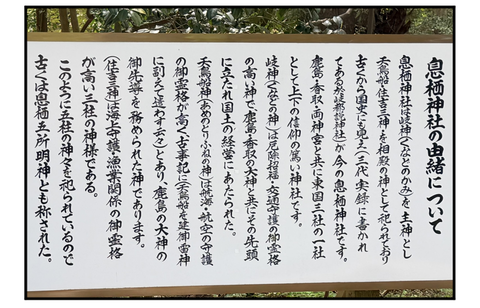 息栖神社の由緒について
息栖神社は岐神(くなどのかみ)を主神とし
天鳥船・住吉三神を相殿の神として祀られており
古くから国史にも見え(三代実録に書かれ
てある於岐都説神社)が今の息栖神社です。
鹿島・香取両神宮と共に東国三社の一社
として上下の信仰の篤い神社です。
岐神(くなどの神)は厄除招福・交通守護の御霊格
の高い神で、鹿島香取の大神と共にその先頭
に立たれ国土の経営にあたられた。
天鳥船神(あめのとりふねの神)は航海・航空の守護
の御霊格が高く、古事記に(天鳥船を建御雷神
に副えて遣わす云々)とあり、鹿島の大神の
御先導を務められた神であります。
(住吉三神)は海上守護・漁業関係の御霊格
が高い三柱の神様である。
このように五柱の神々を祀られているので
古くは息栖五所明神とも称された。